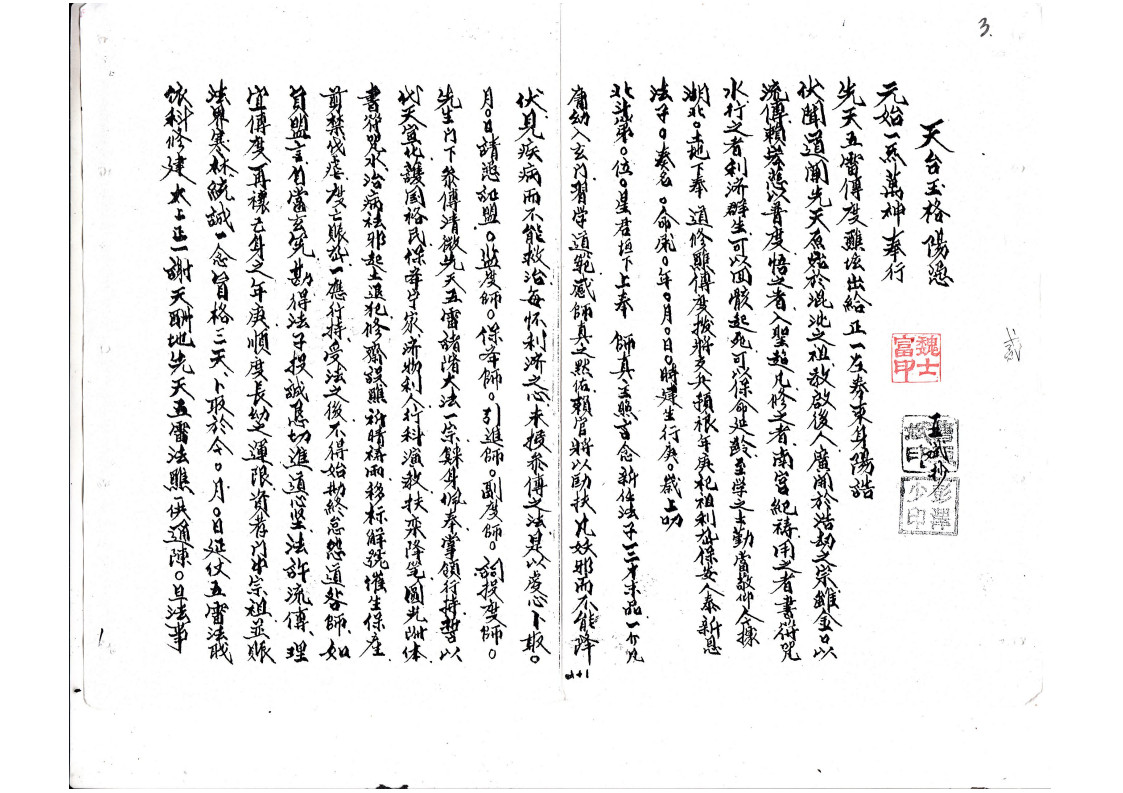 3.
弍
天台玉格陽憑
元始一炁萬神奉行
魏士富印
王斌抄
先天五雷傳度醮坛出給正一左奉東身陽誥
伏聞道闡先天原始於混沌之祖教啟後人廣開於浩劫之宗雖金口以
流傳賴慈悲以普度悟之者入聖超凡修之者南宮紀祷用之者書符咒
水行之者利濟群生可以回骸起死可以保命延齡至学之士勤當敬仰今據
湖北○土地下奉道修醮傳度撥將交兵填根年庚祀祖利孤保安人泰新恩
法子○奏名○命凮○年○月○日○時建生行庚○歲上叩
北斗第○位○星君垣下上奉師真主照言念新件法子一三才末品一介凡
庸幼入玄门習学道範感師真之默佐賴官將以助扶凡妖邪而不能降
伏見疾病而不能救治每怀利濟之心未授参傳之法是以虔心卜取○
月○日請憑証盟○监度師○保舉師○引進師○副度師○詞投度師○
先生门下参傳清微先天五雷諸階大法一宗録身佩奉掌領行持誓以
代天宣化護国裕民保举宁家濟物利人行科演教扶鸾降笔圆光附体
書符咒水治病祛邪起土退犯修齋設醮祈晴祷雨移标解鎖催生保產
剪禁伐虐度亡賑孤一應行持受法之後不得始勤終怠怨道咎師如
負盟言自當玄宪勘得法子投誠恳切進道心坚法許流傳理
宜傳度再禳己身之年庚順度長幼之運限資荐门中宗祖並賑
法界寒林統誠一念冒格三天卜取於今○月○日延仗五雷法職
依科修建太上正一謝天酬地先天五雷法醮一供通陳○旦法事